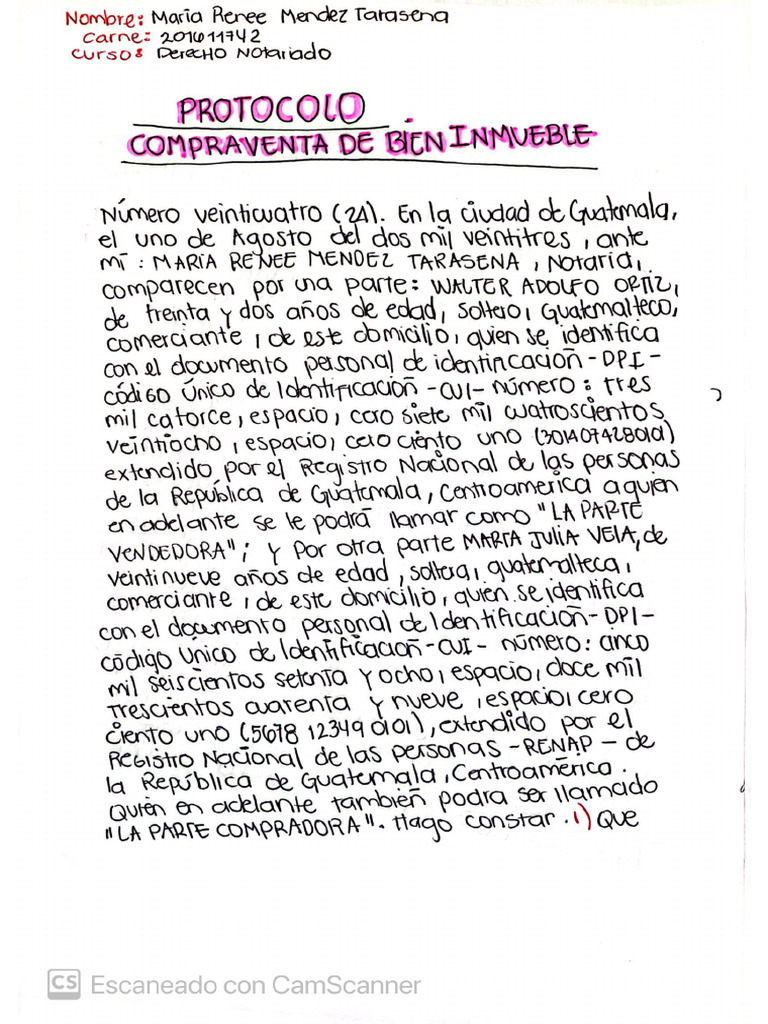 Nombre: María Renee Mendez Tarasena
Carne: 201611742
Curso: Derecho Notariado
PROTOCOLO
COMPRAVENTA DE BIEN INMUEBLE
Número veinticuatro (24). En la ciudad de Guatemala,
el uno de Agosto del dos mil veintitres, ante
mí: MARÍA RENEE MENDEZ TARASENA, Notaria,
comparecen por una parte: WALTER ADOLFO ORTIZ,
de treinta y dos años de edad, soltero, Guatemalteco,
comerciante, de este domicilio, quien se identifica
con el documento personal de identificación -DPI-
código único de Identificación -CUI- número: tres
mil catorce, espacio, cero siete mil cuatroscientos
veintiocho, espacio, cero ciento uno (3014074280101)
extendido por el Registro Nacional de las personas
de la República de Guatemala, Centroamerica a quien
en adelante se le podrá llamar como "LA PARTE
VENDEDORA"; y Por otra parte MARTA JULIA VELA, de
veintinueve años de edad, soltera, guatemalteca,
comerciante, de este domicilio, quien se identifica
con el documento personal de Identificación -DPI-
código Único de Identificación -CUI- número: cinco
mil seiscientos setenta y ocho, espacio, doce mil
trescientos cuarenta y nueve, espacio, cero
ciento uno (5678 12349 0101), extendido por el
Registro Nacional de las personas -RENAP- de
la República de Guatemala, Centroamérica.
Quién en adelante también podra ser llamado
"LA PARTE COMPRADORA". Hago constar. 1) Que
CS Escaneado con CamScanner